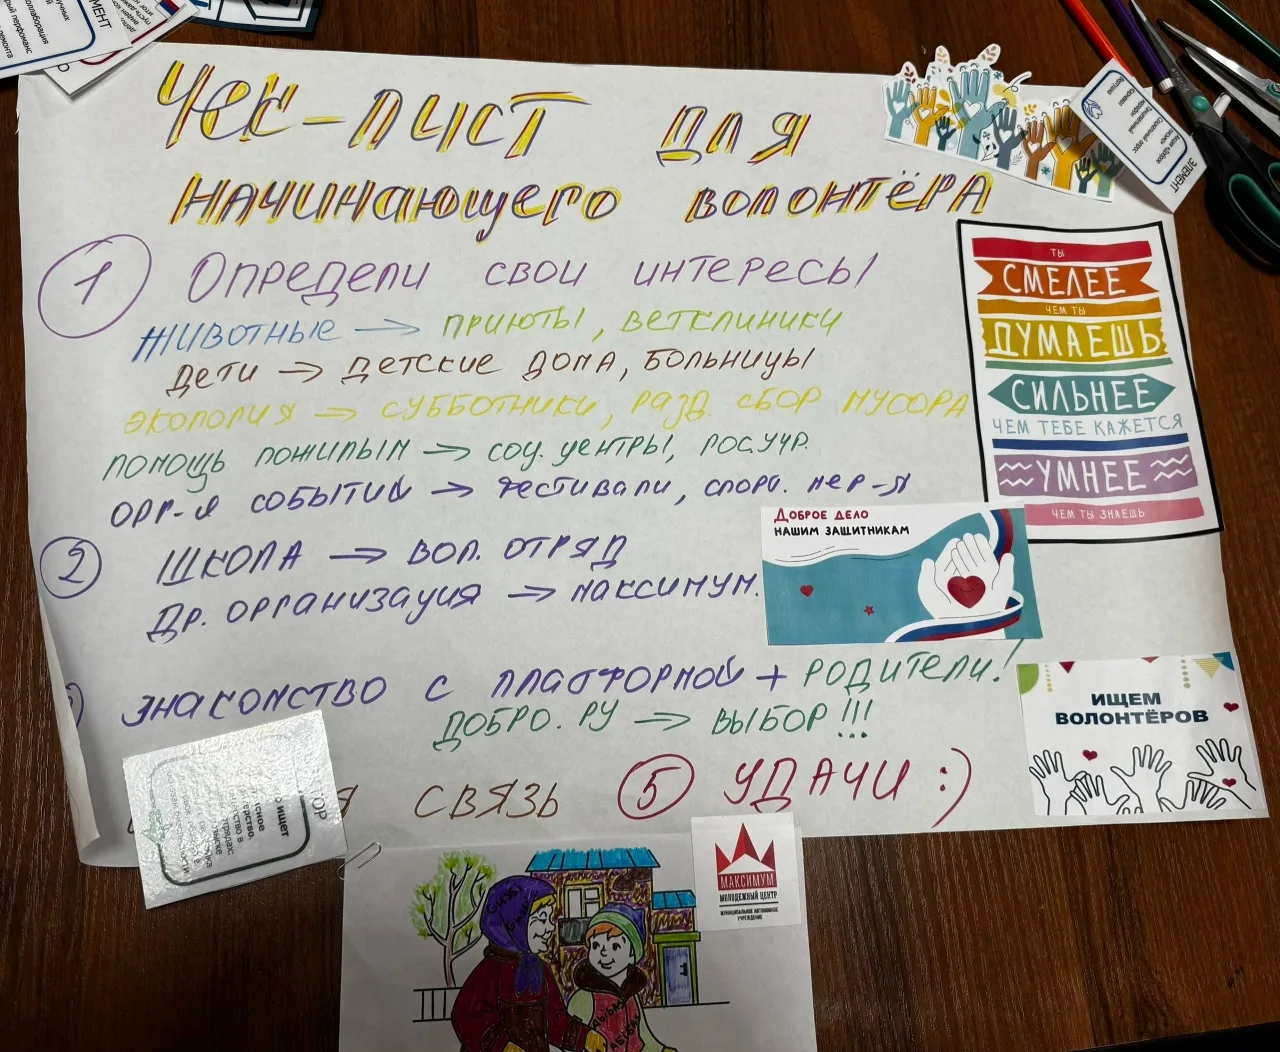 ЧЕК-ЛИСТ ДЛЯ
НАЧИНАЮЩЕГО ВОЛОНТЁРА
1 ОПРЕДЕЛИ СВОИ ИНТЕРЕСЫ
ЖИВОТНЫЕ → ПРИЮТЫ, ВЕТКЛИНИКИ
ДЕТИ → ДЕТСКИЕ ДОМА, БОЛЬНИЦЫ
ЭКОЛОГИЯ → СУББОТНИКИ, РАЗД. СБОР МУСОРА
ПОМОЩЬ ПОЖИЛЫМ → СОЦ. ЦЕНТРЫ, ГОС.УЧР.
ОРГ-Я СОБЫТИЙ → ФЕСТИВАЛИ, СПОРТ. МЕР-Я
2 ШКОЛА → ВОЛ. ОТРЯД
ДР. ОРГАНИЗАЦИЯ → МАКСИМУМ.
ЗНАКОМСТВО С ПЛАТФОРМОЙ + РОДИТЕЛИ!
ДОБРО.РУ → ВЫБОР!!!
Я СВЯЗЬ
5 УДАЧИ :)
ТЫ
СМЕЛЕЕ
ЧЕМ ТЫ
ДУМАЕШЬ
СИЛЬНЕЕ
ЧЕМ ТЕБЕ КАЖЕТСЯ
УМНЕЕ
ЧЕМ ТЫ ЗНАЕШЬ
ДОБРОЕ ДЕЛО
НАШИМ ЗАЩИТНИКАМ
ИЩЕМ
ВОЛОНТЁРОВ
МАКСИМУМ
МОЛОДЕЖНЫЙ ЦЕНТР
МУНИЦИПАЛЬНОЕ АВТОНОМНОЕ
УЧРЕЖДЕНИЕ
ЭЛЕМЕНТ